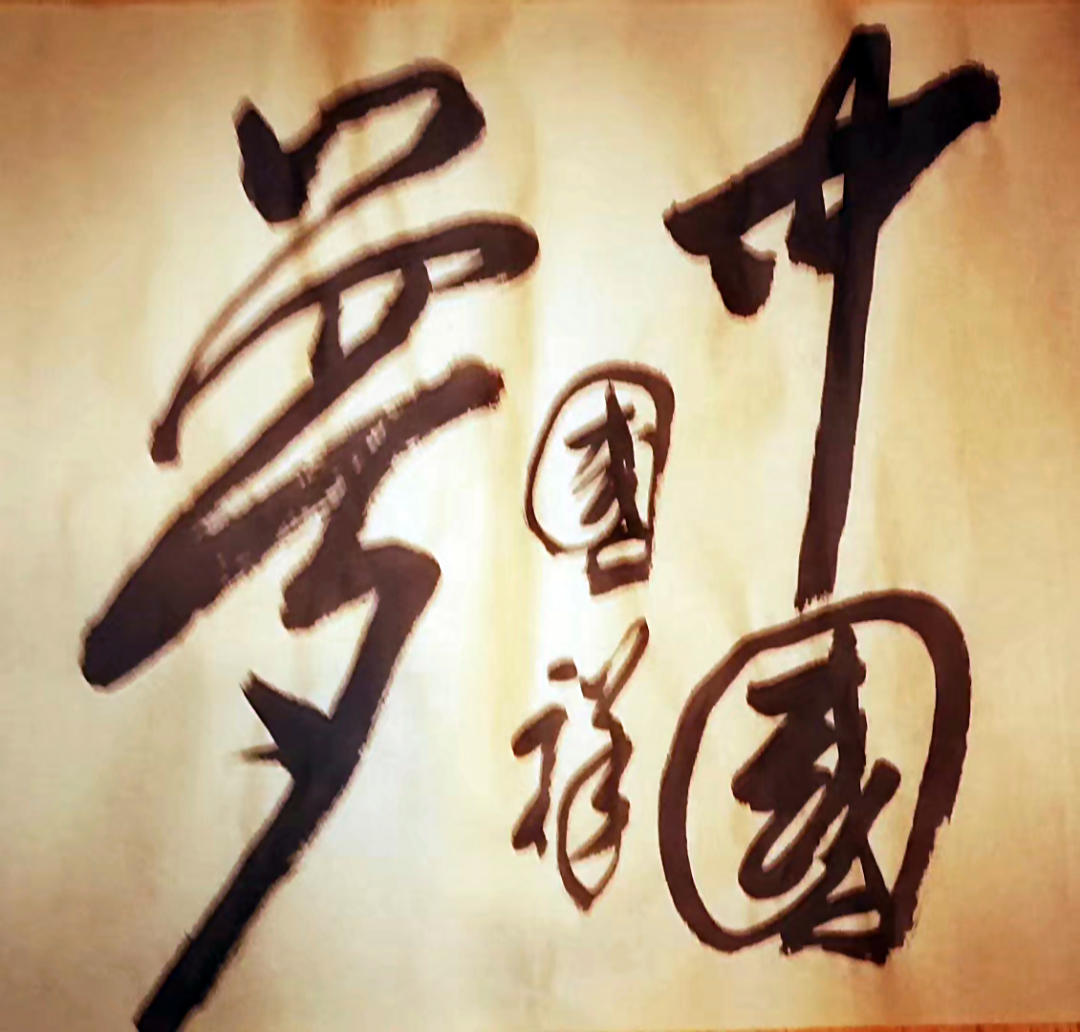 中國
夢
國祥